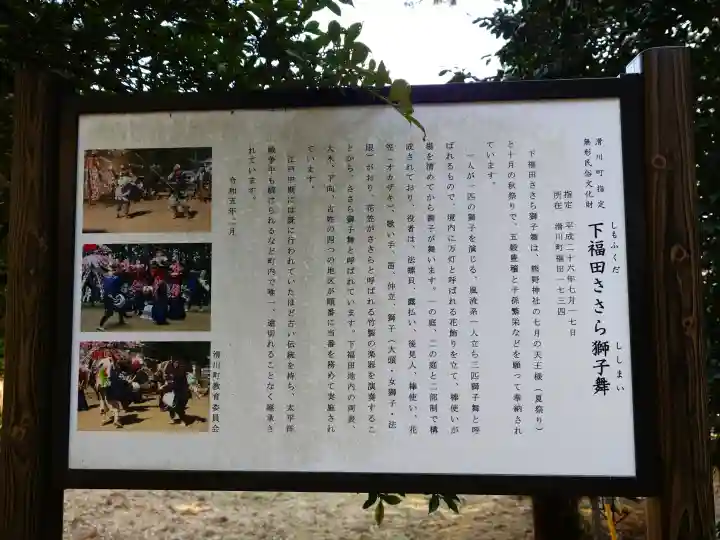 滑川町指定
無形民俗文化財
下福田ささら獅子舞
しもふくだ
ししまい
指定 平成二十六年七月一七日
所在 滑川町福田一七三四
下福田ささら獅子舞は、熊野神社の七月の天王様(夏祭り)
と十月の秋祭りで、五穀豊穣と子孫繁栄などを願って奉納され
ています。
一人が一匹の獅子を演じる、風流系一人立ち三匹獅子舞と呼
ばれるもので、境内に万灯と呼ばれる花飾りを立て、棒使いが
場を清めてから獅子が舞います。一の庭、二の庭と二部制で構
成されており、役者は、法螺貝、露払い、後見人、棒使い、花
笠(オカザキ)、歌い手、笛、仲立、獅子(大頭・女獅子・法
眼)がおり、花笠がささらと呼ばれる竹製の楽器を演奏するこ
とから、ささら獅子舞と呼ばれています。下福田地内の両表、
大木、下向、古姓の四つの地区が順番に当番を務めて実施され
ています。
江戸中期には既に行われていたほど古い伝統を持ち、太平洋
戦争中も続けられるなど町内で唯一、途切れることなく継承さ
れています。
令和五年二月
滑川町教育委員会